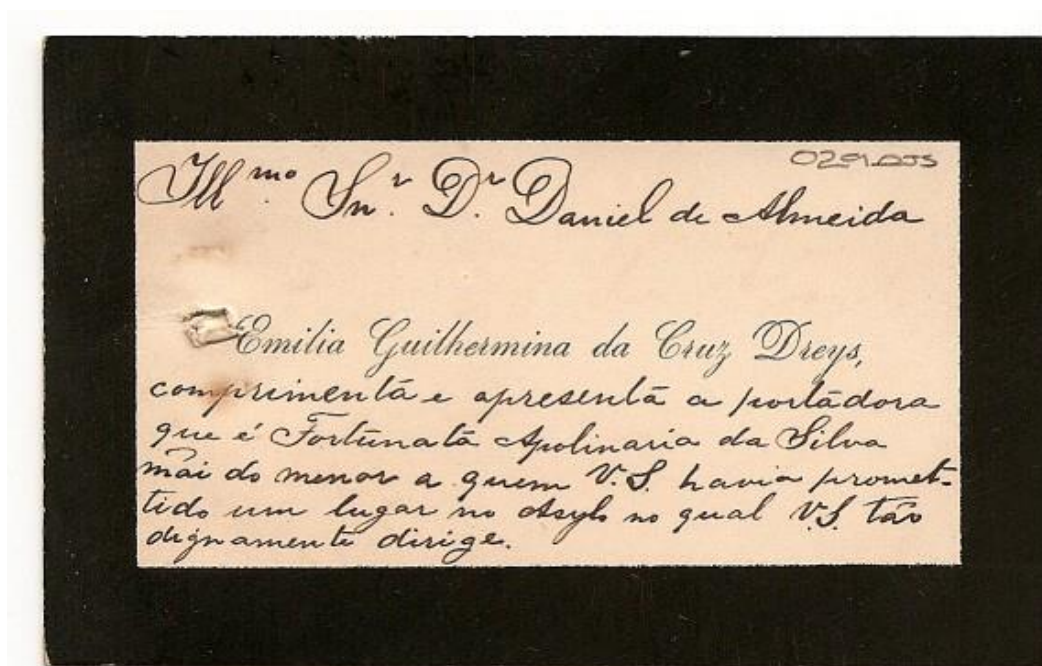 0291.005
Ill.mo Snr. Dr. Daniel de Almeida
Emilia Guilhermina da Cruz Dreys,
comprimenta e apresenta a portadora
que é Fortunata Apolinaria da Silva
mãi do menor a quem V.S. havia promet-
tido um lugar no Asylo no qual V.S. tão
dignamente dirige.